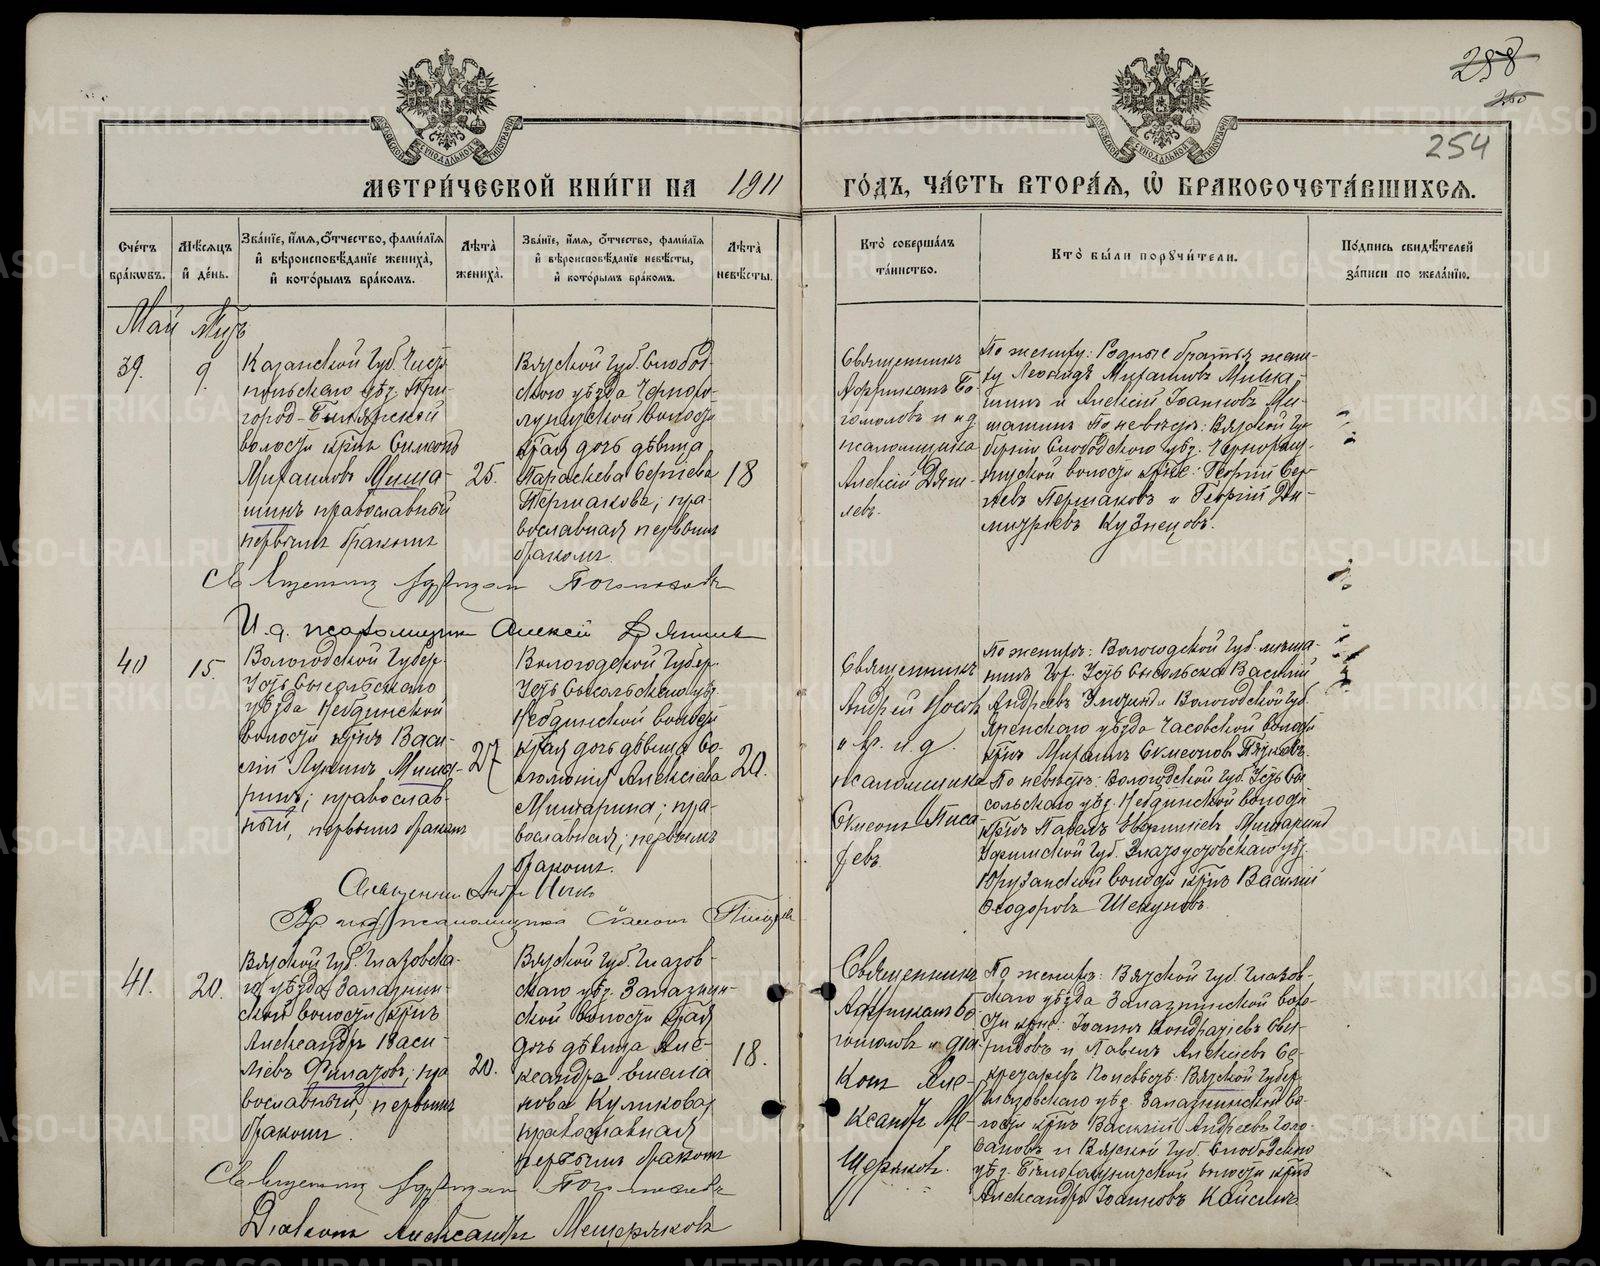 258
260
254
МЕТРИ́ЧЕСКОЙ КНИ́ГИ НА 1911 ГО́ДЪ, ЧА́СТЬ ВТОРА́Я, Ѡ БРАКОСОЧЕТА́ВШИХСЯ.
Сче́тъ бра́ковъ.
Мѣ́сяцъ и де́нь.
Зва́нїе, и́мя, ѻ́тчество, фами́лїя
и вѣроисповѣ́данїе жениха̀,
и кото́рымъ бра́комъ.
Лѣ́та жениха̀.
Зва́нїе, и́мя, ѻ́тчество, фами́лїя
и вѣроисповѣ́данїе невѣ́сты,
и кото́рымъ бра́комъ.
Лѣ́та невѣ́сты.
Кто̀ соверша́лъ
та́инство.
Кто̀ бы́ли порꙋчи́тели.
По́дпись свидѣ́телей
за́писи по жела́нїю.
Май
39.
9.
Казанской губ. Чисто-
польскаго уѣз. При-
город-Билярской
волости кр-нъ Симеонъ
Михаиловъ Миша-
шинъ православный
первымъ бракомъ
25.
Вятской губ. Слобод-
ского уѣзда Чернохо-
луницкой волости
кр-ая дочь дѣвица
Параскева Сергіева
Першакова; пра-
вославная первымъ
бракомъ.
18
Священникъ
Африканъ Бо-
гомоловъ и и д
псаломщика
Алексій
По жениху: Родные братья жени-
ху Леонидъ Михаиловъ Миша-
шинъ и Алексій Іоанновъ Ми-
шашинъ По невѣстѣ: Вятской гу-
берніи Слободского уѣз. Чернохолу-
ницкой волости кр-не: Георгій Сер-
гіевъ Першаковъ и Георгій Ди-
митріевъ Кузнецовъ.
Священникъ Африкан Богомоловъ
И. д. псаломщика Алексей
40
15.
Вологодской Губер.
Усть Сысольскаго
уѣзда Небдинской
волости кр-нъ Васи-
лій Лукинъ Миша-
ринъ; православ-
ный, первымъ бракомъ
27
Вологодской Губер.
Усть Сысольскаго уѣз.
Небдинской волости
кр-ая дочь дѣвица Со-
ломонія Алексіева
Мишарина; пра-
вославная; первымъ
бракомъ.
20.
Священникъ
Андрей Носовъ
и вр. и. д.
псаломщика
Симеонъ Писа-
ревъ
По женихѣ: Вологодской Губ. мѣща-
нинъ гор. Усть Сысольска Василій
Андреевъ и Вологодской губ.
Яренскаго уѣзда Часовской волости
кр-нъ Михаилъ Симеоновъ
По невѣстѣ: Вологодской Губ. Усть Сы-
сольскаго уѣз. Небдинской волости
кр-нъ Павелъ Мишаринъ
Уфимской Губ. Златоустовскаго уѣз.
Юрузанской волости кр-нъ Василій
Ѳеодоровъ Шекуновъ.
Священник Андр Носов
Вр и д псаломщика Симеон Писарев
41.
20.
Вятской Губ. Глазовска-
го уѣзда Залазнин-
ской волости кр-нъ
Александръ Васи-
ліевъ Филатовъ, пра
вославный, первымъ
бракомъ.
20.
Вятской Губ. Глазов-
скаго уѣз. Залазнин-
ской волости кр-ая
дочь дѣвица Але-
ксандра
нова Куликова,
православная
первымъ бракомъ
18.
Священникъ
Африканъ Бо
гомоловъ и діа-
конъ Але-
ксандръ Ме-
щеряков.
По женихѣ: Вятской Губ. Глазов-
скаго уѣзда Залазнинской воло-
сти кр-не: Іоаннъ Кондратіевъ Сви-
ридовъ и Павелъ Алексіевъ
По невѣстѣ: Вятской Губер
Глазовскаго уѣз. Залазнинской во-
лости кр-нъ Василій Андреевъ Голо-
вановъ и Вятской Губ. Слободского
уѣз. Бѣлохолуницкой волости кр-нъ
Александръ Іоанновъ
Священник Африкан Богомоловъ
Діаконъ Александръ Мещеряковъ